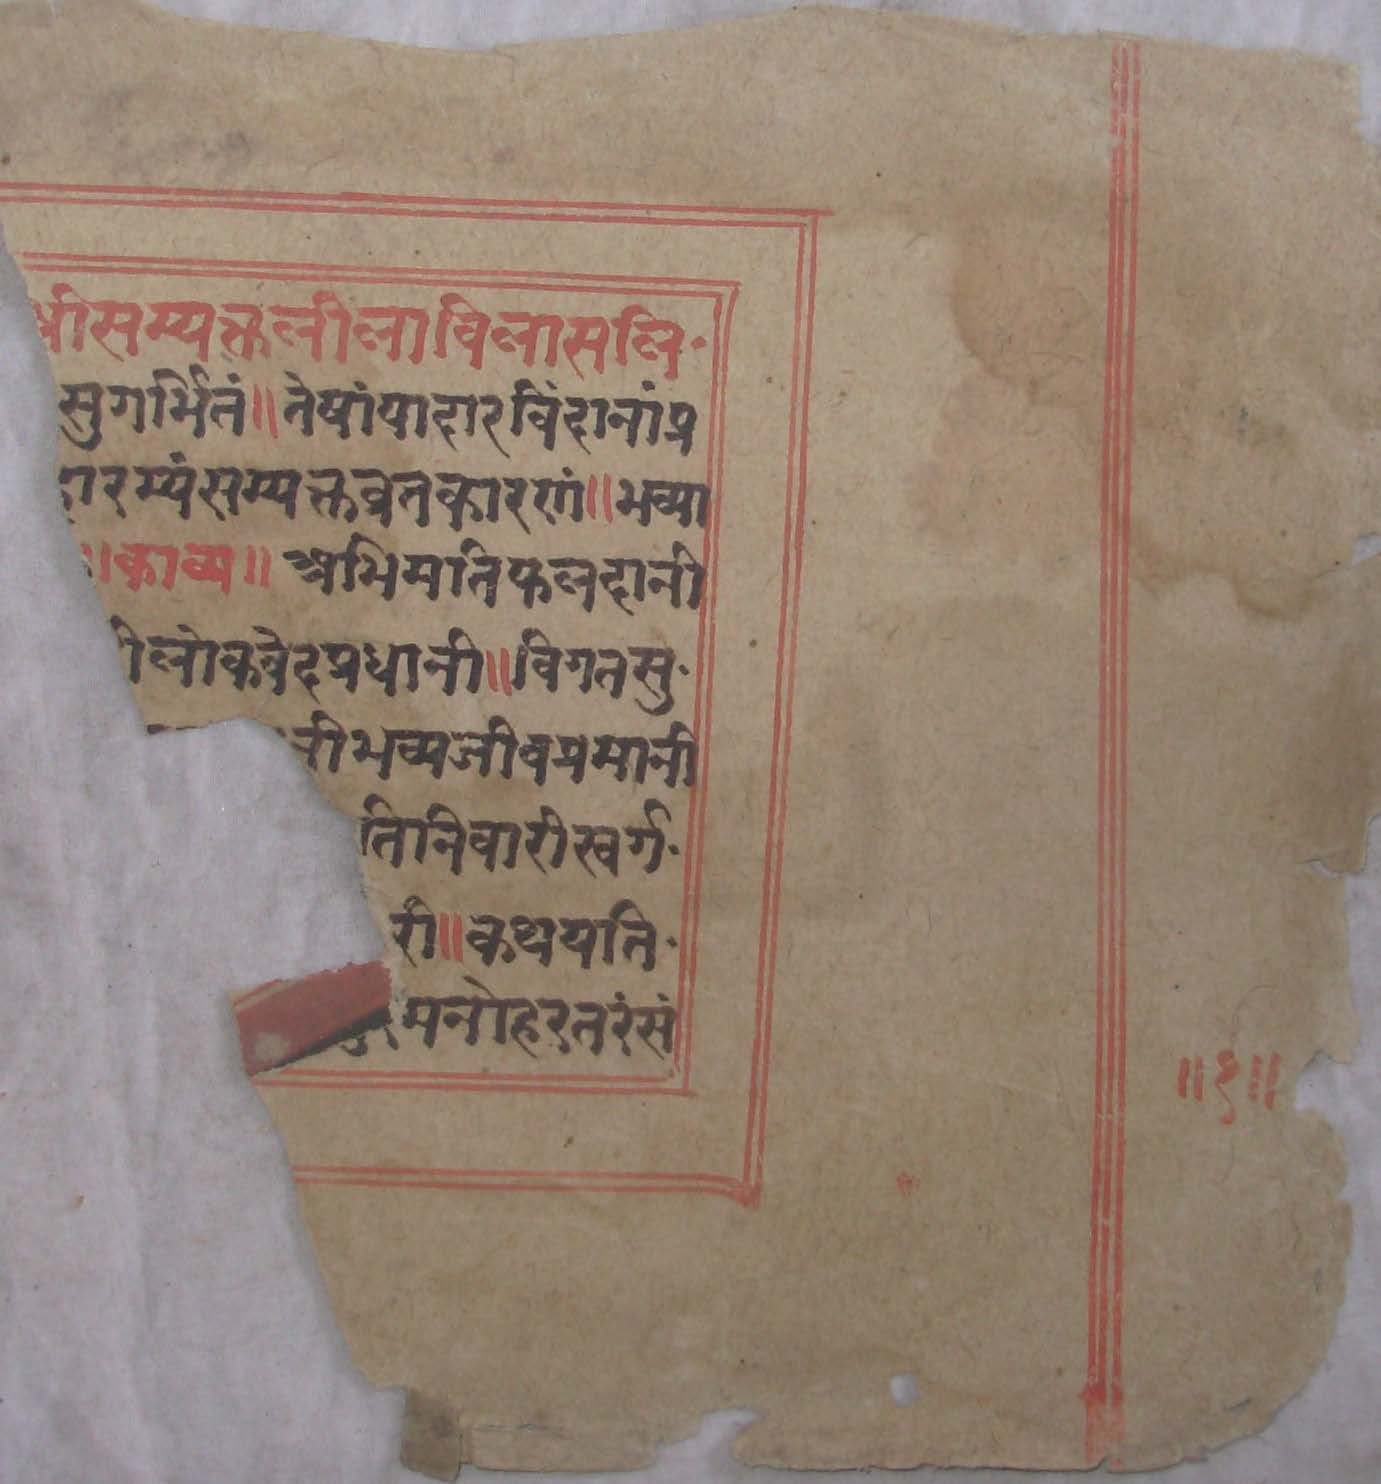 श्रीसम्यक्तलीलाविलासलि
सुगर्भितं॥तेषांपादारविंदानांप्र
दारम्यंसम्यक्तव्रतकारणं॥भव्या
॥काव्य॥ अभिमतिफलदानी
लोकवेदप्रधानी॥विगतसु
नीभव्यजीवप्रमानी
तिनिवारीस्वर्ग
री॥कथयति
मनोहरतरंसं
॥१॥